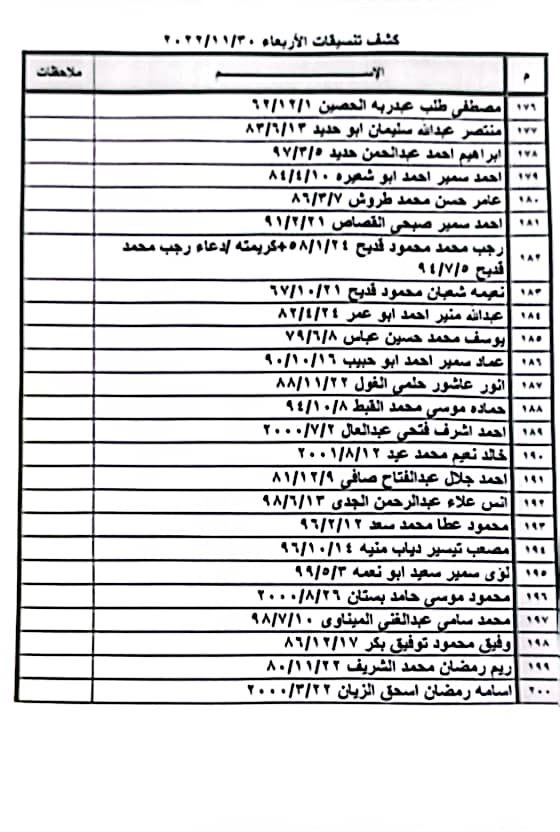 كشف تنسيقات الأربعاء ٢٠٢٢/١١/٣٠
م الاســـــــــــم ملاحظات
١٧٦ مصطفى طلب عبدربه الحصين ٦٢/١٢/١
١٧٧ منتصر عبدالله سليمان ابو حديد ٨٣/٦/١٣
١٧٨ ابراهيم احمد عبدالحمن حديد ٩٧/٣/٥
١٧٩ احمد سمير احمد ابو شعيره ٨٤/٤/١٠
١٨٠ عامر حسن محمد طروش ٨٦/٣/٧
١٨١ احمد سمير صبحي القصاص ٩١/٢/٢١
١٨٢ رجب محمد محمود قديح ٥٨/١/٢٤+كريمته /دعاء رجب محمد
قديح ٩٤/٧/٥
١٨٣ نعيمه شعبان محمود قديح ٦٧/١٠/٢١
١٨٤ عبدالله منير احمد ابو عمر ٨٢/٤/٢٤
١٨٥ يوسف محمد حسين عباس ٧٩/٦/٨
١٨٦ عماد سمير احمد ابو حبيب ٩٠/١٠/١٦
١٨٧ انور عاشور حلمي الغول ٨٨/١١/٢٢
١٨٨ حماده موسي محمد القبط ٩٤/١٠/٨
١٨٩ احمد اشرف فتحي عبدالعال ٢٠٠٠/٧/٢
١٩٠ خالد نعيم محمد عيد ٢٠٠١/٨/١٢
١٩١ احمد جلال عبدالفتاح صافي ٨١/١٢/٩
١٩٢ انس علاء عبدالرحمن الجدي ٩٨/٦/١٣
١٩٣ محمود عطا محمد سعد ٩٦/٢/١٢
١٩٤ مصعب تيسير دياب منيه ٩٦/١٠/١٤
١٩٥ لؤى سمير سعيد ابو نعمه ٩٩/٥/٣
١٩٦ محمود موسي حامد بستان ٢٠٠٠/٨/٢٦
١٩٧ محمد سامي عبدالغني الميناوى ٩٨/٧/١٠
١٩٨ وفيق محمود توفيق بكر ٨٦/١٢/١٧
١٩٩ ريم رمضان محمد الشريف ٨٠/١١/٢٢
٢٠٠ اسامه رمضان اسحق الزيان ٢٠٠٠/٣/٢٢